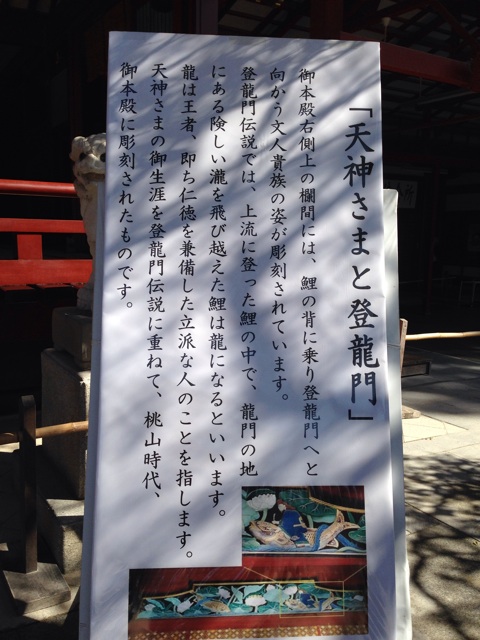 「天神さまと登龍門」
御本殿右側上の欄間には、鯉の背に乗り登龍門へと
向かう文人貴族の姿が彫刻されています。
登龍門伝説では、上流に登った鯉の中で、龍門の地
にある険しい瀧を飛び越えた鯉は龍になるといいます。
龍は王者、即ち仁徳を兼備した立派な人のことを指します。
天神さまの御生涯を登龍門伝説に重ねて、桃山時代、
御本殿に彫刻されたものです。